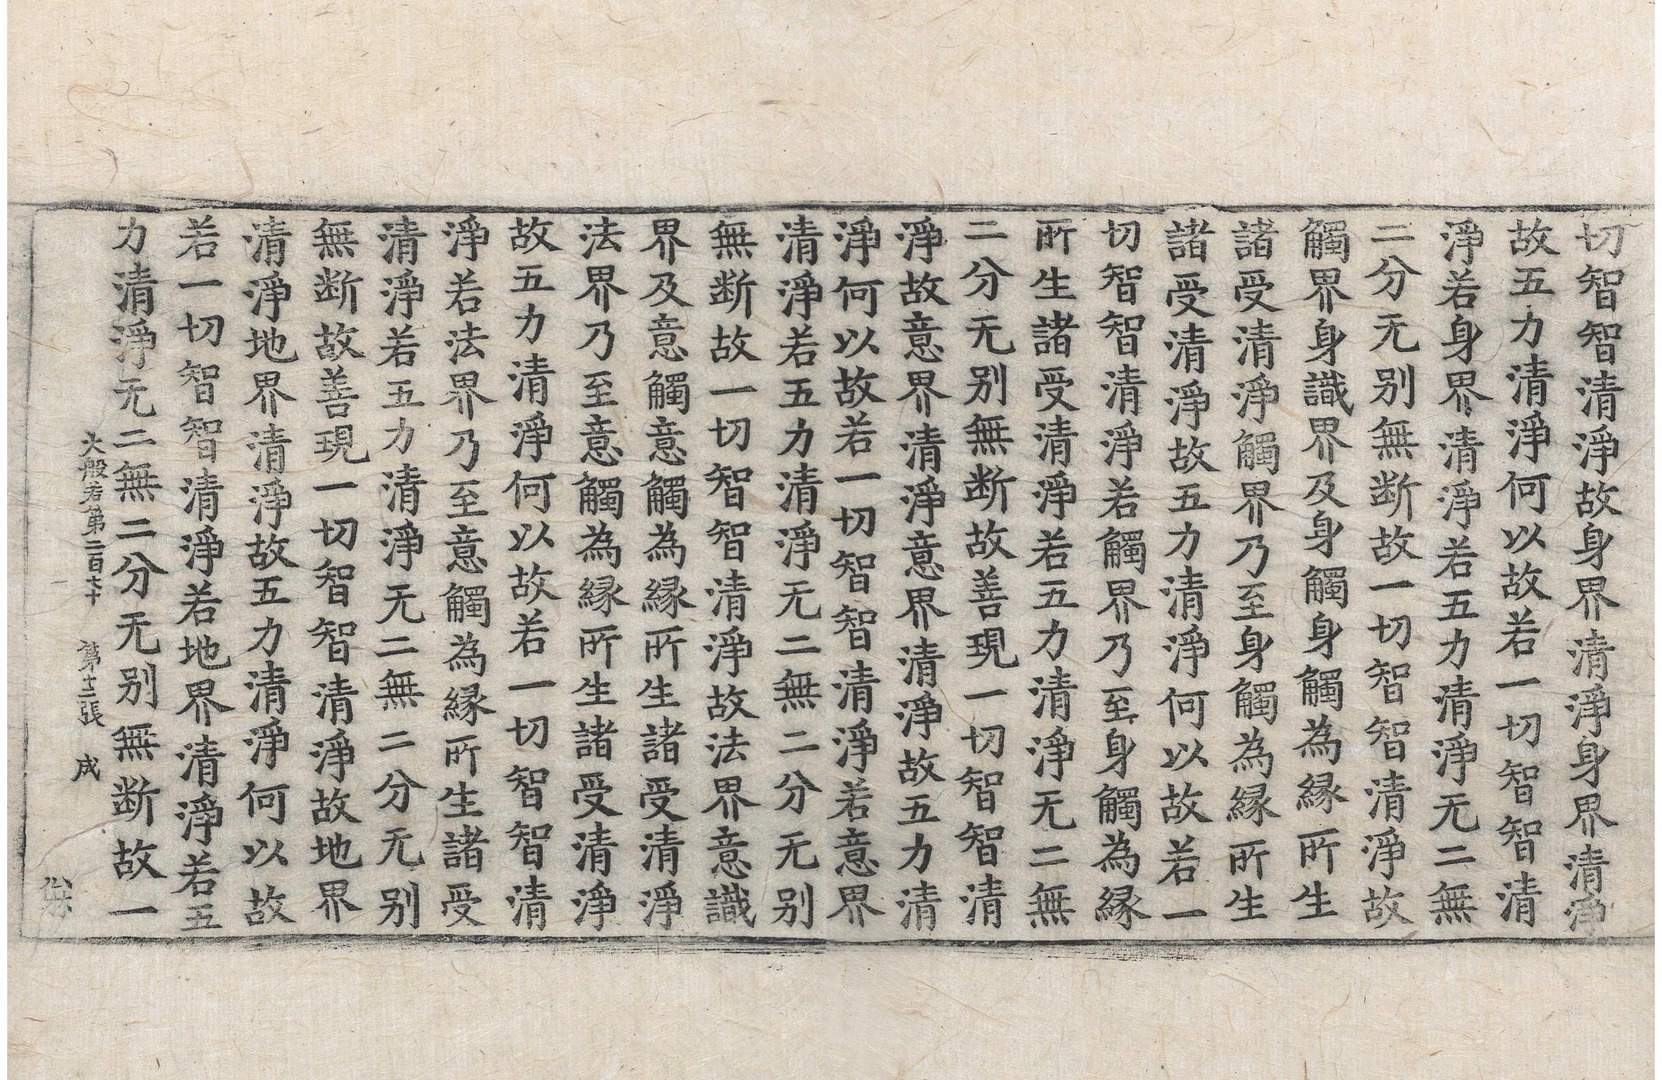 切智智清淨故身界清淨身界清淨
故五力清淨何以故若一切智智清
淨若身界清淨若五力清淨无二無
二分无别無断故一切智智清淨故
觸界身識界及身觸身觸為縁所生
諸受清淨觸界乃至身觸為縁所生
諸受清淨故五力清淨何以故若一
切智智清淨若觸界乃至身觸為縁
所生諸受清淨若五力清淨无二無
二分无别無断故善現一切智智清
淨故意界清淨意界清淨故五力清
淨何以故若一切智智清淨若意界
清淨若五力清淨无二無二分无别
無断故一切智智清淨故法界意識
界及意觸意觸為縁所生諸受清淨
法界乃至意觸為縁所生諸受清淨
故五力清淨何以故若一切智智清
淨若法界乃至意觸為縁所生諸受
清淨若五力清淨无二無二分无别
無断故善現一切智智清淨故地界
清淨地界清淨故五力清淨何以故
若一切智智清淨若地界清淨若五
力清淨无二無二分无别無断故一
大般若第二百六十 第十二張 成